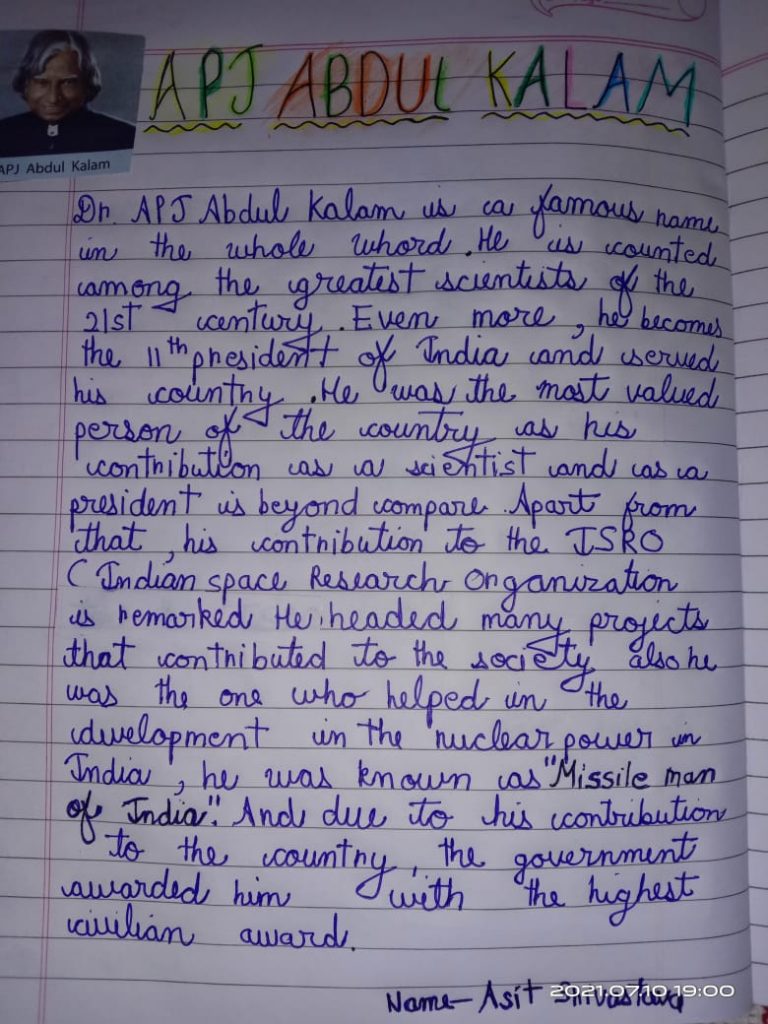 APJ ABDUL KALAM
APJ Abdul Kalam
Dr. APJ Abdul Kalam is a famous name
in the whole whord. He is counted
among the greatest scientists of the
21st century. Even more, he becomes
the 11th president of India and served
his country. He was the most valued
person of the country as his
contribution as a scientist and as a
president is beyond compare. Apart from
that, his contribution to the ISRO
( Indian space Research Organization
is remarked He headed many projects
that contributed to the society also he
was the one who helped in the
development in the nuclear power in
India, he was known as "Missile man
of India". And due to his contribution
to the country, the government
awarded him with the highest
civilian award.
Name- Asit Srivastava
2021.07.10 19:00